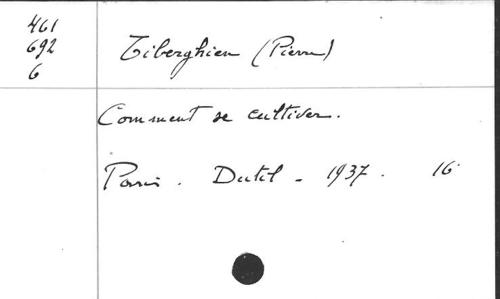 461
692
6
Tiberghien (Pierre)
Comment se cultiver.
Paris. Dutil - 1937. 16